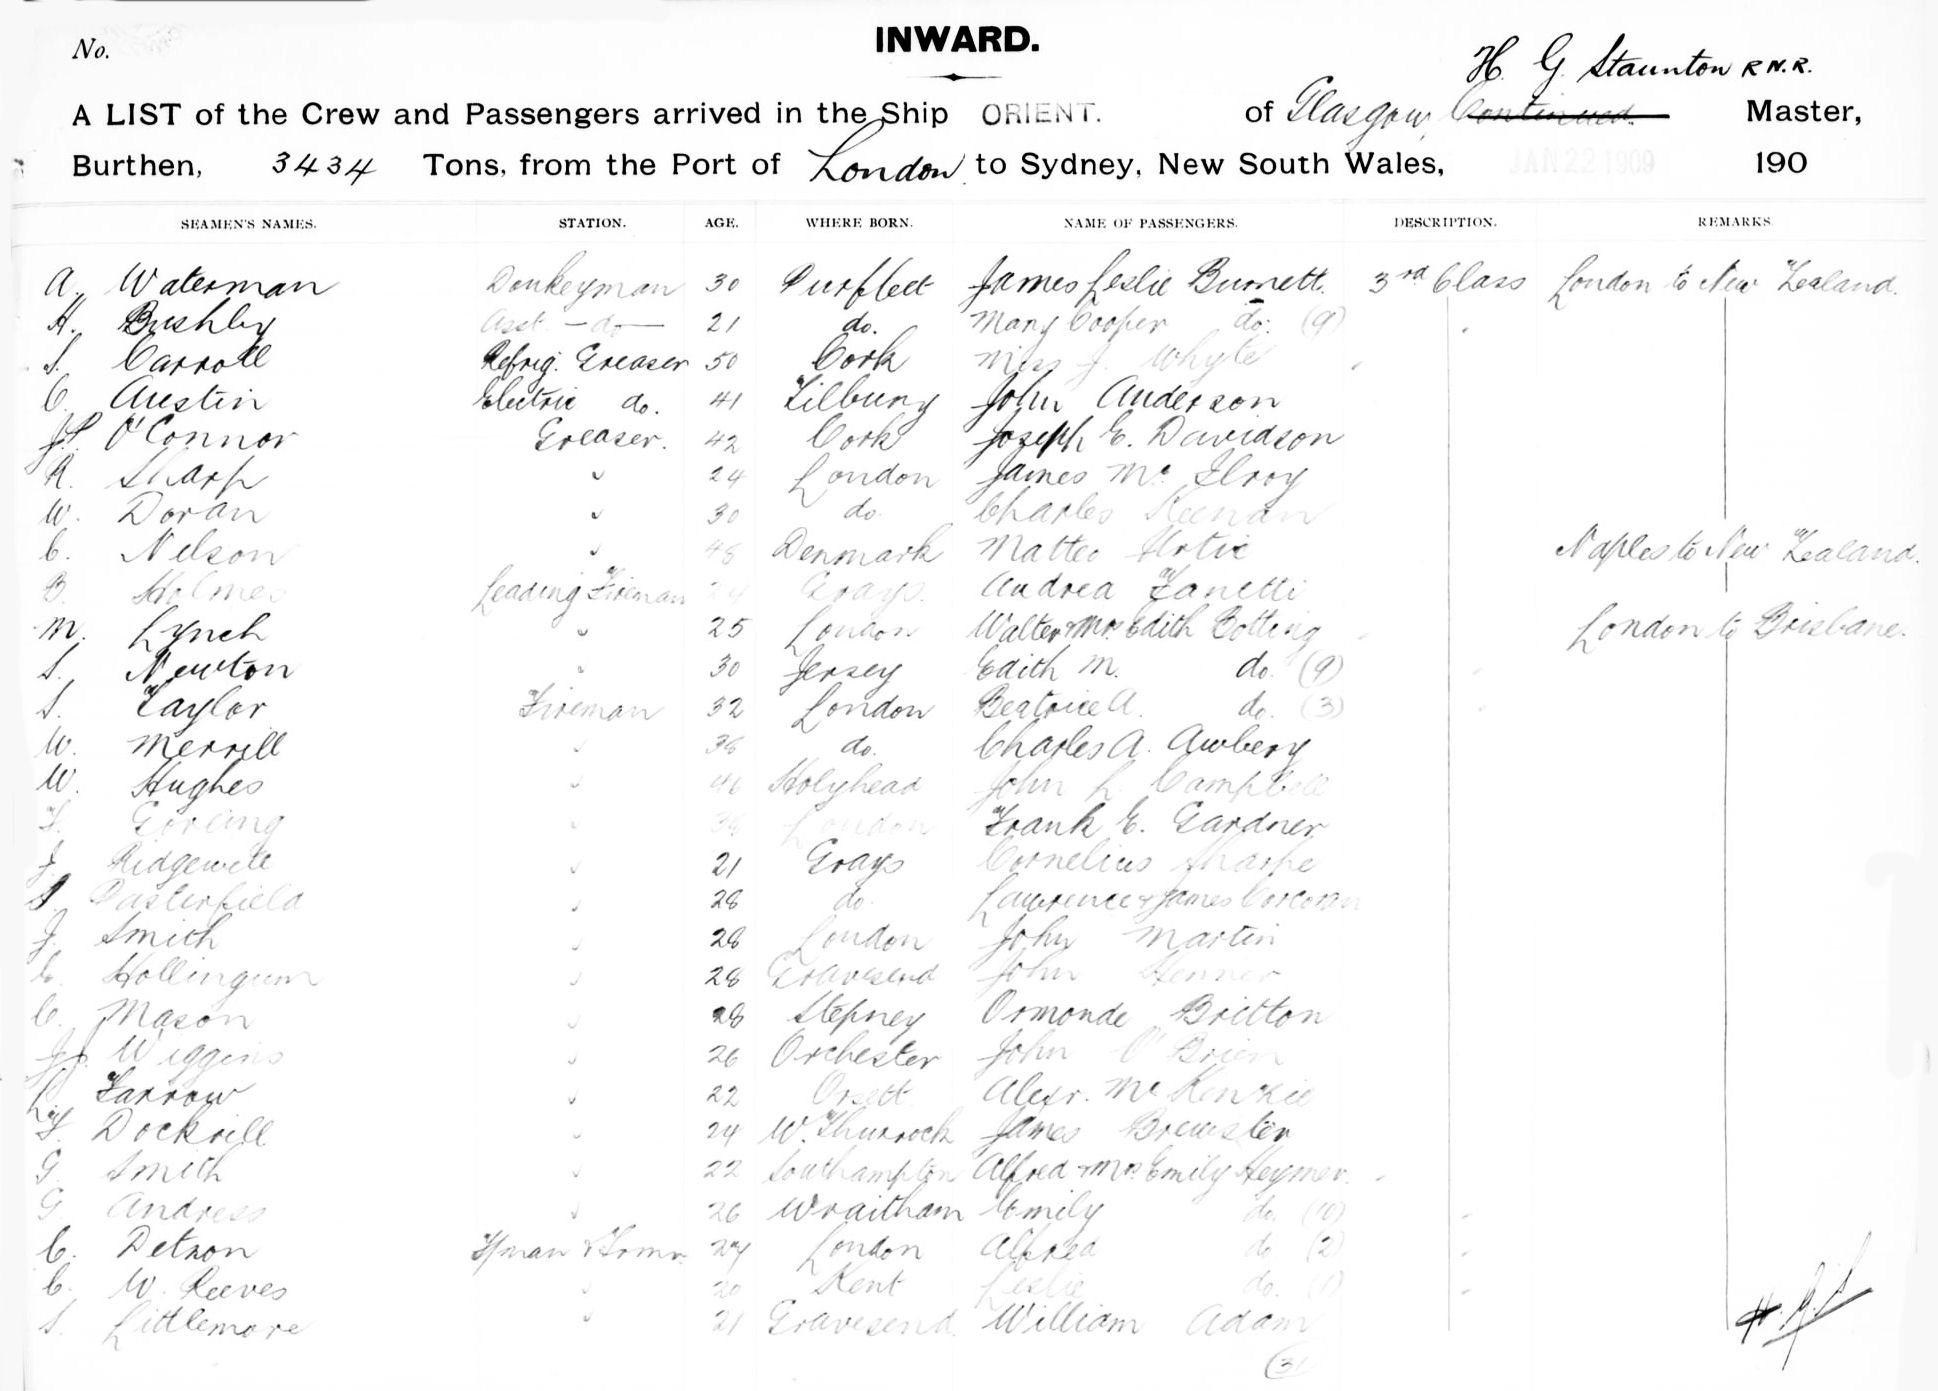 No.
INWARD.
H. G. Staunton R.N.R.
A LIST of the Crew and Passengers arrived in the Ship ORIENT. of Glasgow, Continued. Master,
Burthen, 3434 Tons, from the Port of London to Sydney, New South Wales, JAN 22 1909 190
SEAMEN'S NAMES. STATION. AGE. WHERE BORN. NAME OF PASSENGERS. DESCRIPTION. REMARKS
A. Waterman Donkeyman 30 Purfleet James Leslie Burnett. 3rd Class London to New Zealand.
H. Bushby Asst. - do - 21 do. Mary Cooper do. (9)
S. Carroll Refrig. Greaser 50 Cork Miss J. Whyte
C. Austin Electric do. 41 Tilbury John Anderson
O'Connor Greaser. 42 Cork Joseph E. Davidson
R. Sharp " 24 London James Mc Ilroy
W. Doran " 30 do. Charles Keenan
C. Nelson " 48 Denmark Matteo Naples to New Zealand.
B. Holmes Leading Fireman 24 Grays. Andrea Zanetti
M. Lynch " 25 London Walter & Mrs Edith Botting London to Brisbane.
S. Newton " 30 Jersey Edith M. do. (9)
S. Taylor Fireman 32 London Beatrice A. do. (3)
W. Merrill " 38 do. Charles A. Awbery
W. Hughes " 46 Holyhead John L. Campbell
F. Goreing " 38 London Frank E. Gardner
J. Ridgewell " 21 Grays Cornelius Sharpe
S. Pasterfield " 28 do. Lawrence & James Corcoran
J. Smith " 28 London John Martin
E. Hollingum " 28 Gravesend John Henner
C. Mason " 28 Stepney Ormonde Britton
Wiggins " 26 Orchester John O'Brien
Farrow " 22 Orsett Alexr. Mc Kenzie
F. Dockrill " 24 W. Thurrock James Brewster
G. Smith " 22 Southampton Alfred & Mrs Emily Heymer.
G. Andress " 26 Wraitham Emily do. (10)
C. Detnon F/man & Trmr. 27 London Alfred do (2)
C. W. Reeves " 20 Kent Leslie do. (1)
S. Littlemore " 21 Gravesend. William Adam
(31